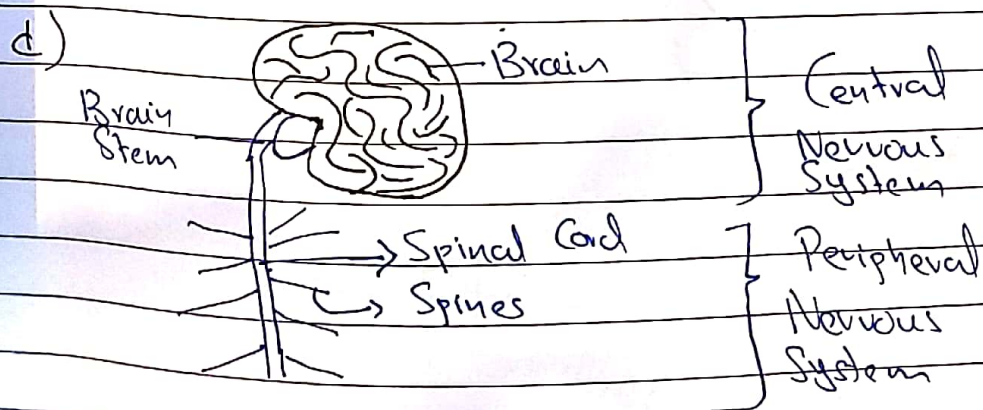 d)
Brain
Brain
Stem
Central
Nervous
System
Spinal Cord
Spines
Peripheral
Nervous
System